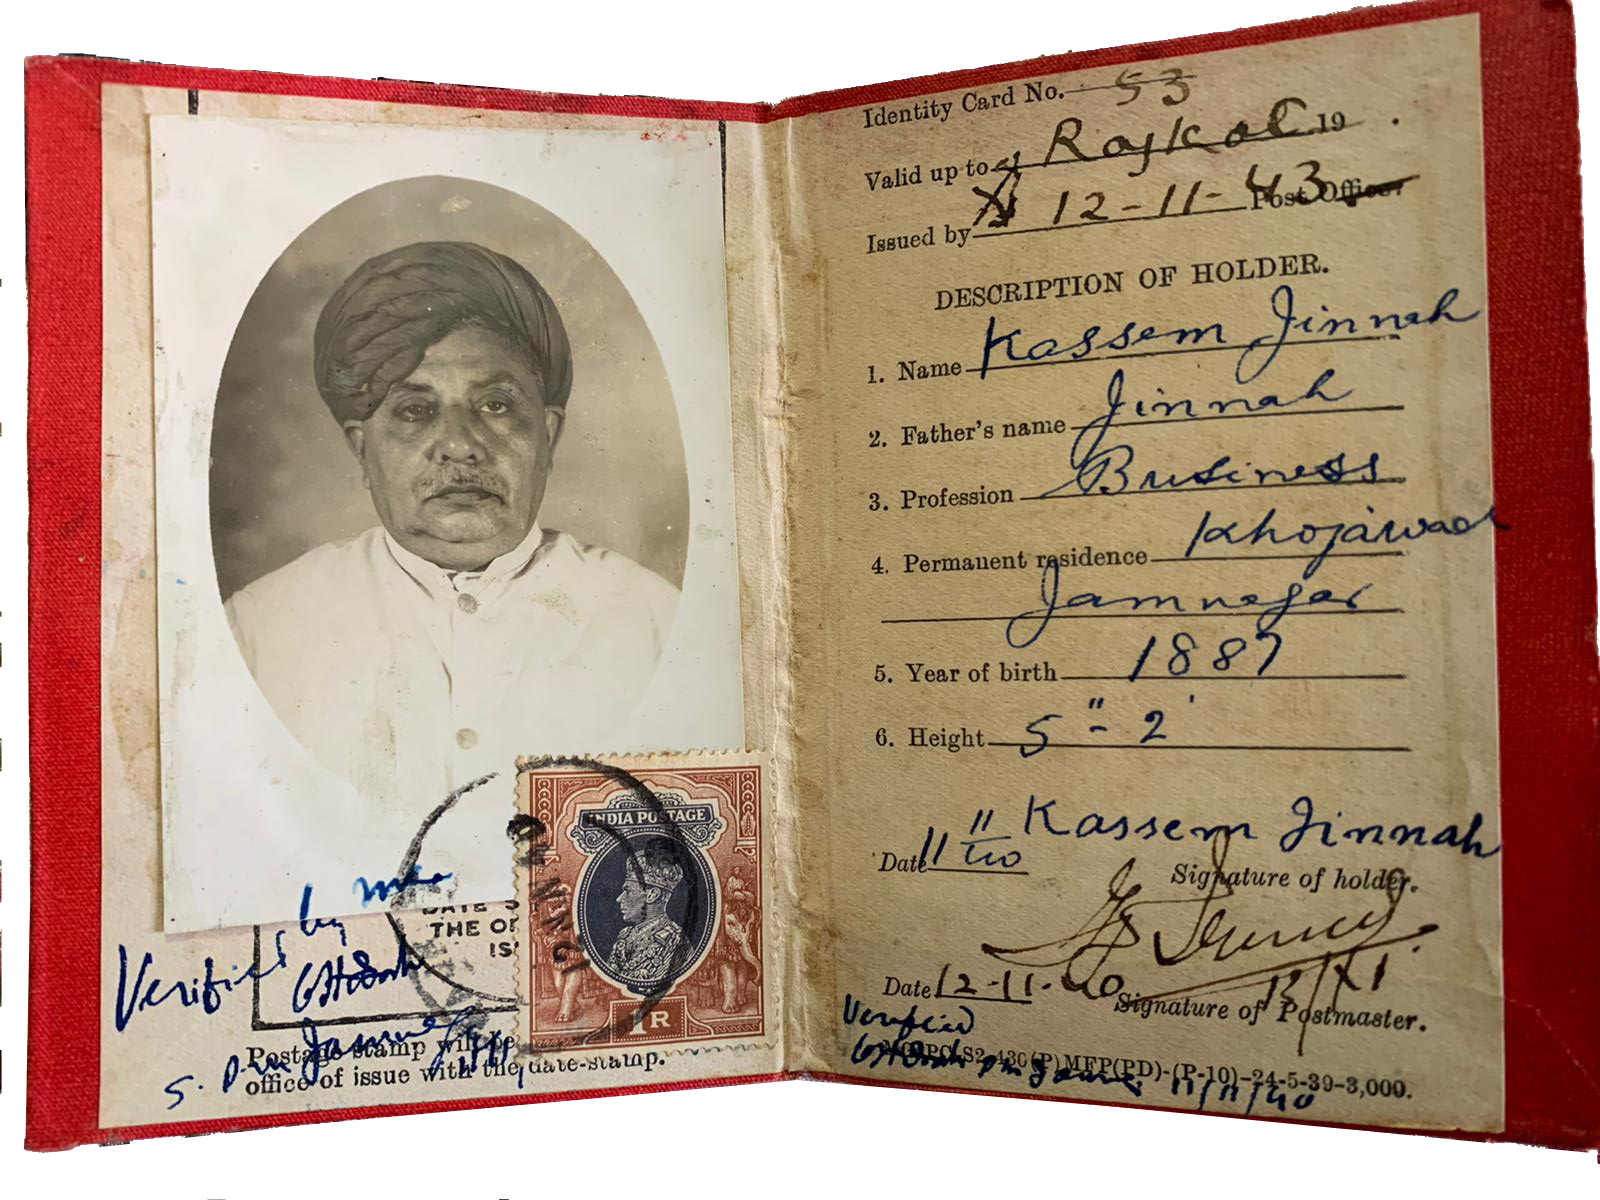 Verified by me
Jamnagar
DATE S
THE OF
IS
Postage stamp will be
office of issue with the date-stamp.
INDIA POSTAGE
1R
12 NOV 40
Identity Card No. 53
Valid up to Rajkot 19 .
Issued by 12-11-43 Post Office.
DESCRIPTION OF HOLDER.
1. Name Kassem Jinnah
2. Father's name Jinnah
3. Profession Business
4. Permanent residence Khojawad
Jamnagar
5. Year of birth 1887
6. Height 5"-2'
Kassem Jinnah
Date 11/11/40
Signature of holder.
Date 12-11-40
Signature of Postmaster.
Verified
S2-43C(P)MFP(PD)-(P-10)-24-5-39-3,000.
11/11/40